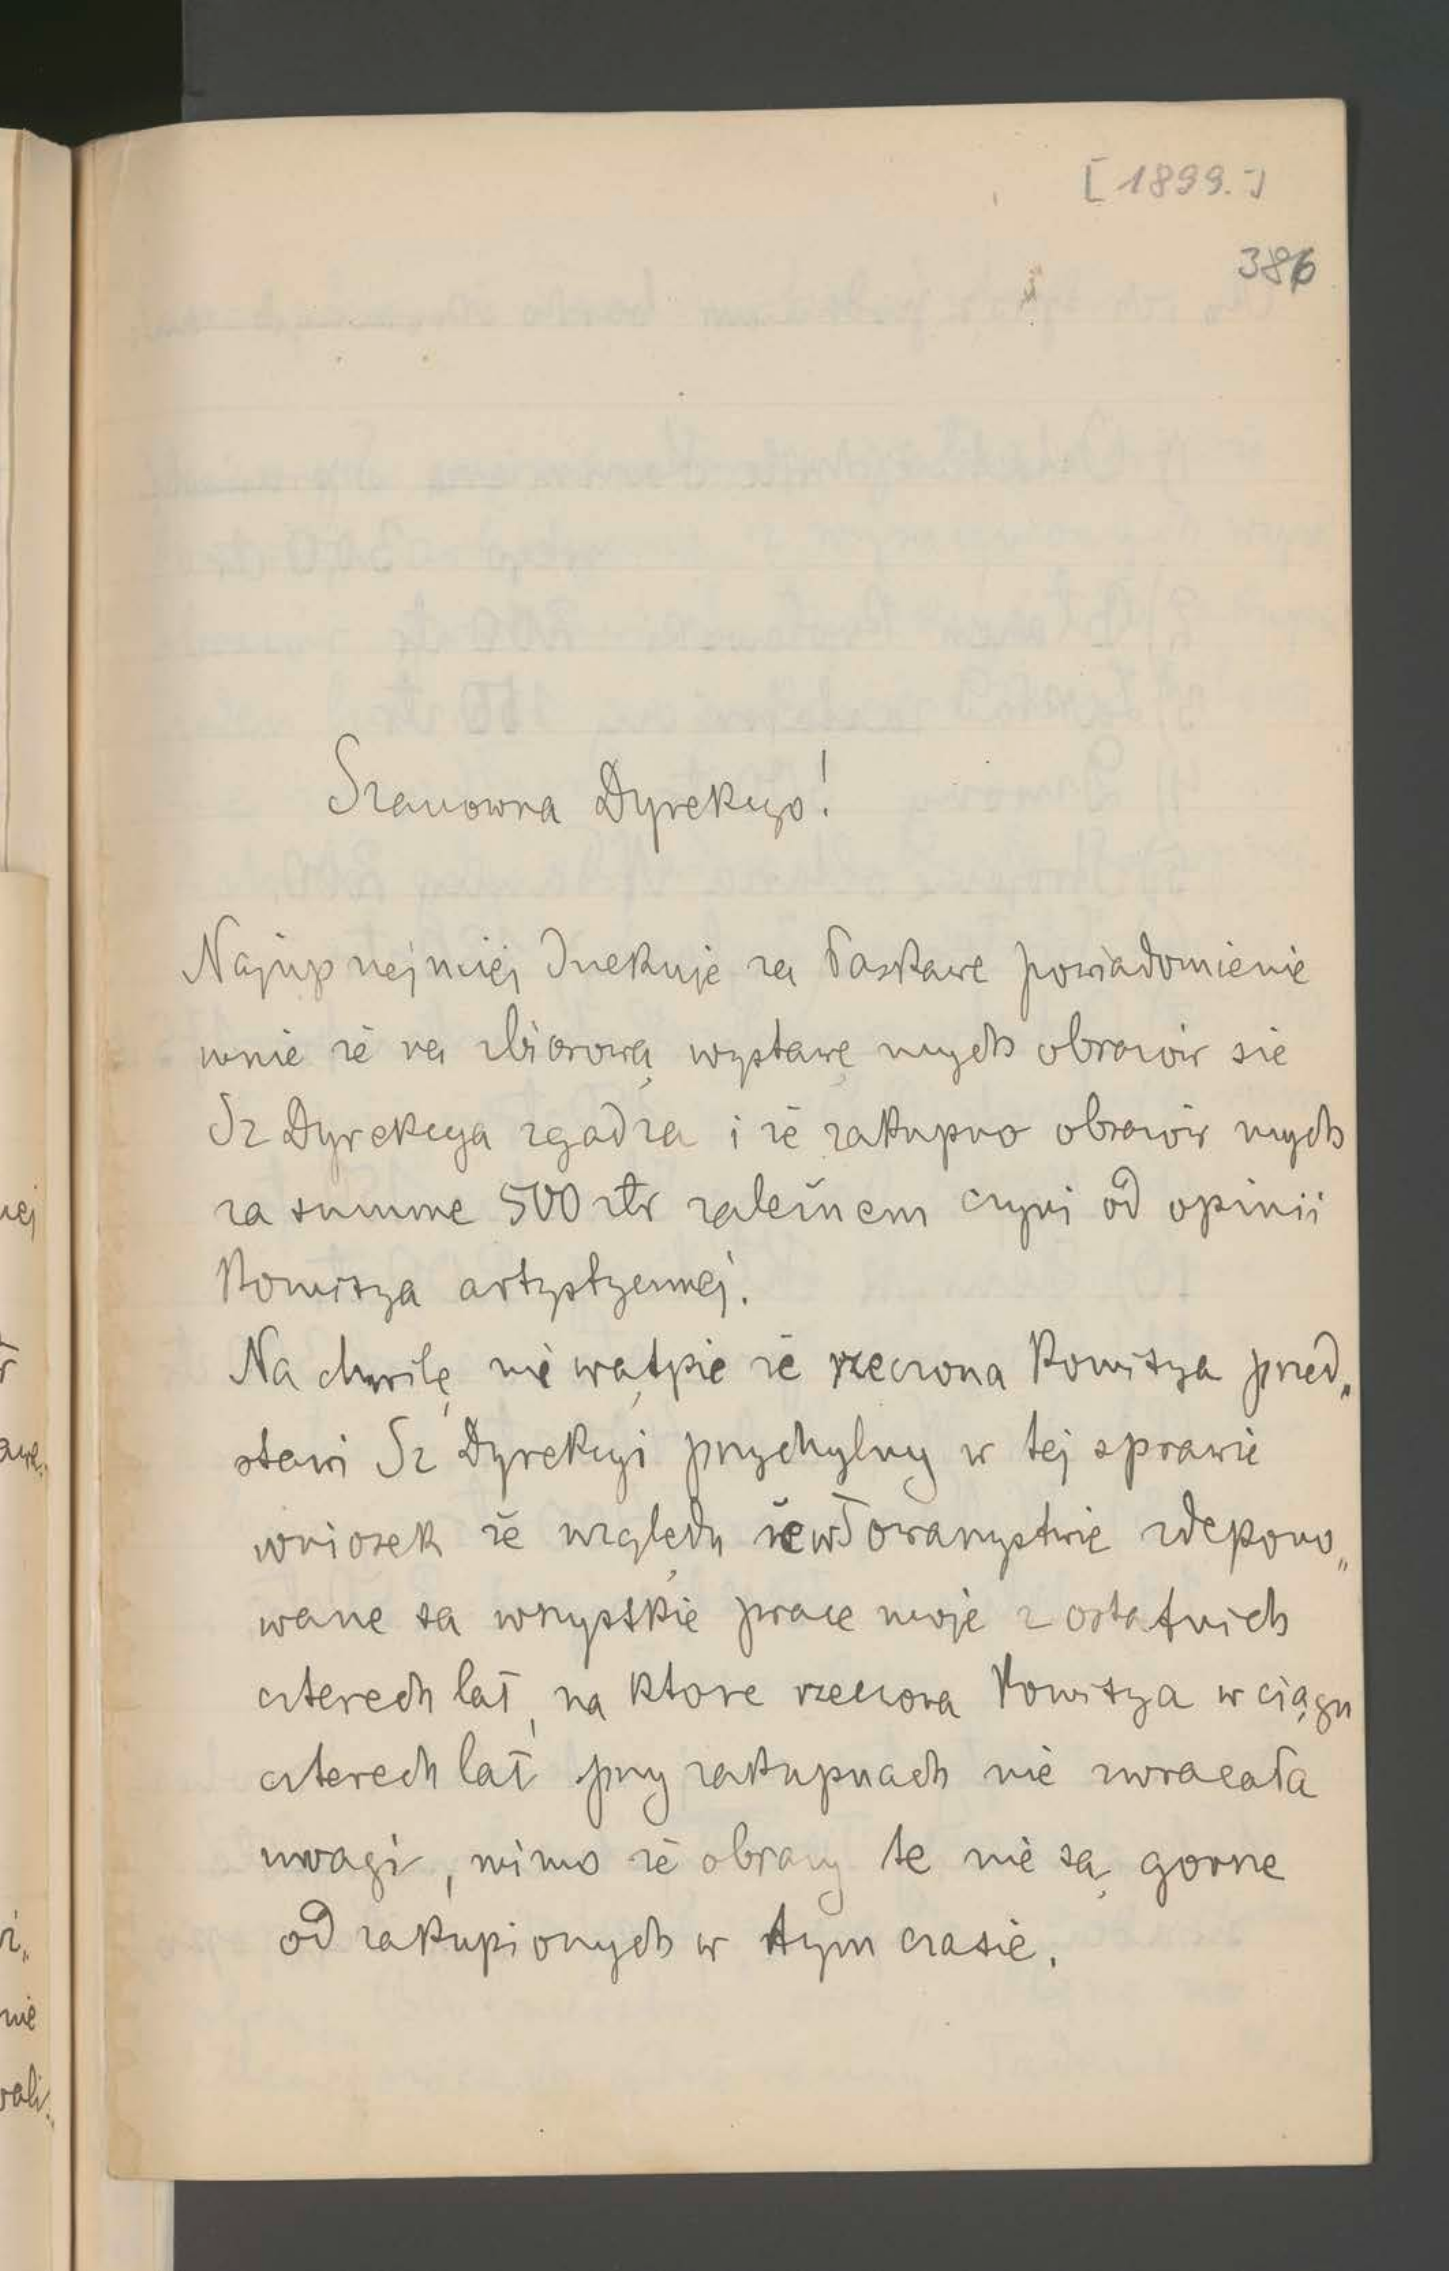 [1899.]
386
Szanowna Dyrekcyo!
Najuprzejmiej dziekuje za łaskawe powiadomienie
mnie że na zbiorową wystawę mych obrazów sie
Sz Dyrekcya zgadza i że zakupno obrazów mych
za summe 500 złr zależnem czyni od opinii
Komisya artystycznej.
Na chwilę nie watpie że rzeczona Komisya przed„
stawi Sz Dyrekcyi przychylny w tej sprawie
wniosek że względu że w Towarzystwie zdepono„
wane sa wszystkie prace moje z ostatnich
czterech lat, na ktore rzeczona Komisya w ciągu
czterech lat przy zakupnach nie zwracała
uwagi, mimo że obrazy te nie są gorsze
od zakupionych w tym czasie.
nej
nie